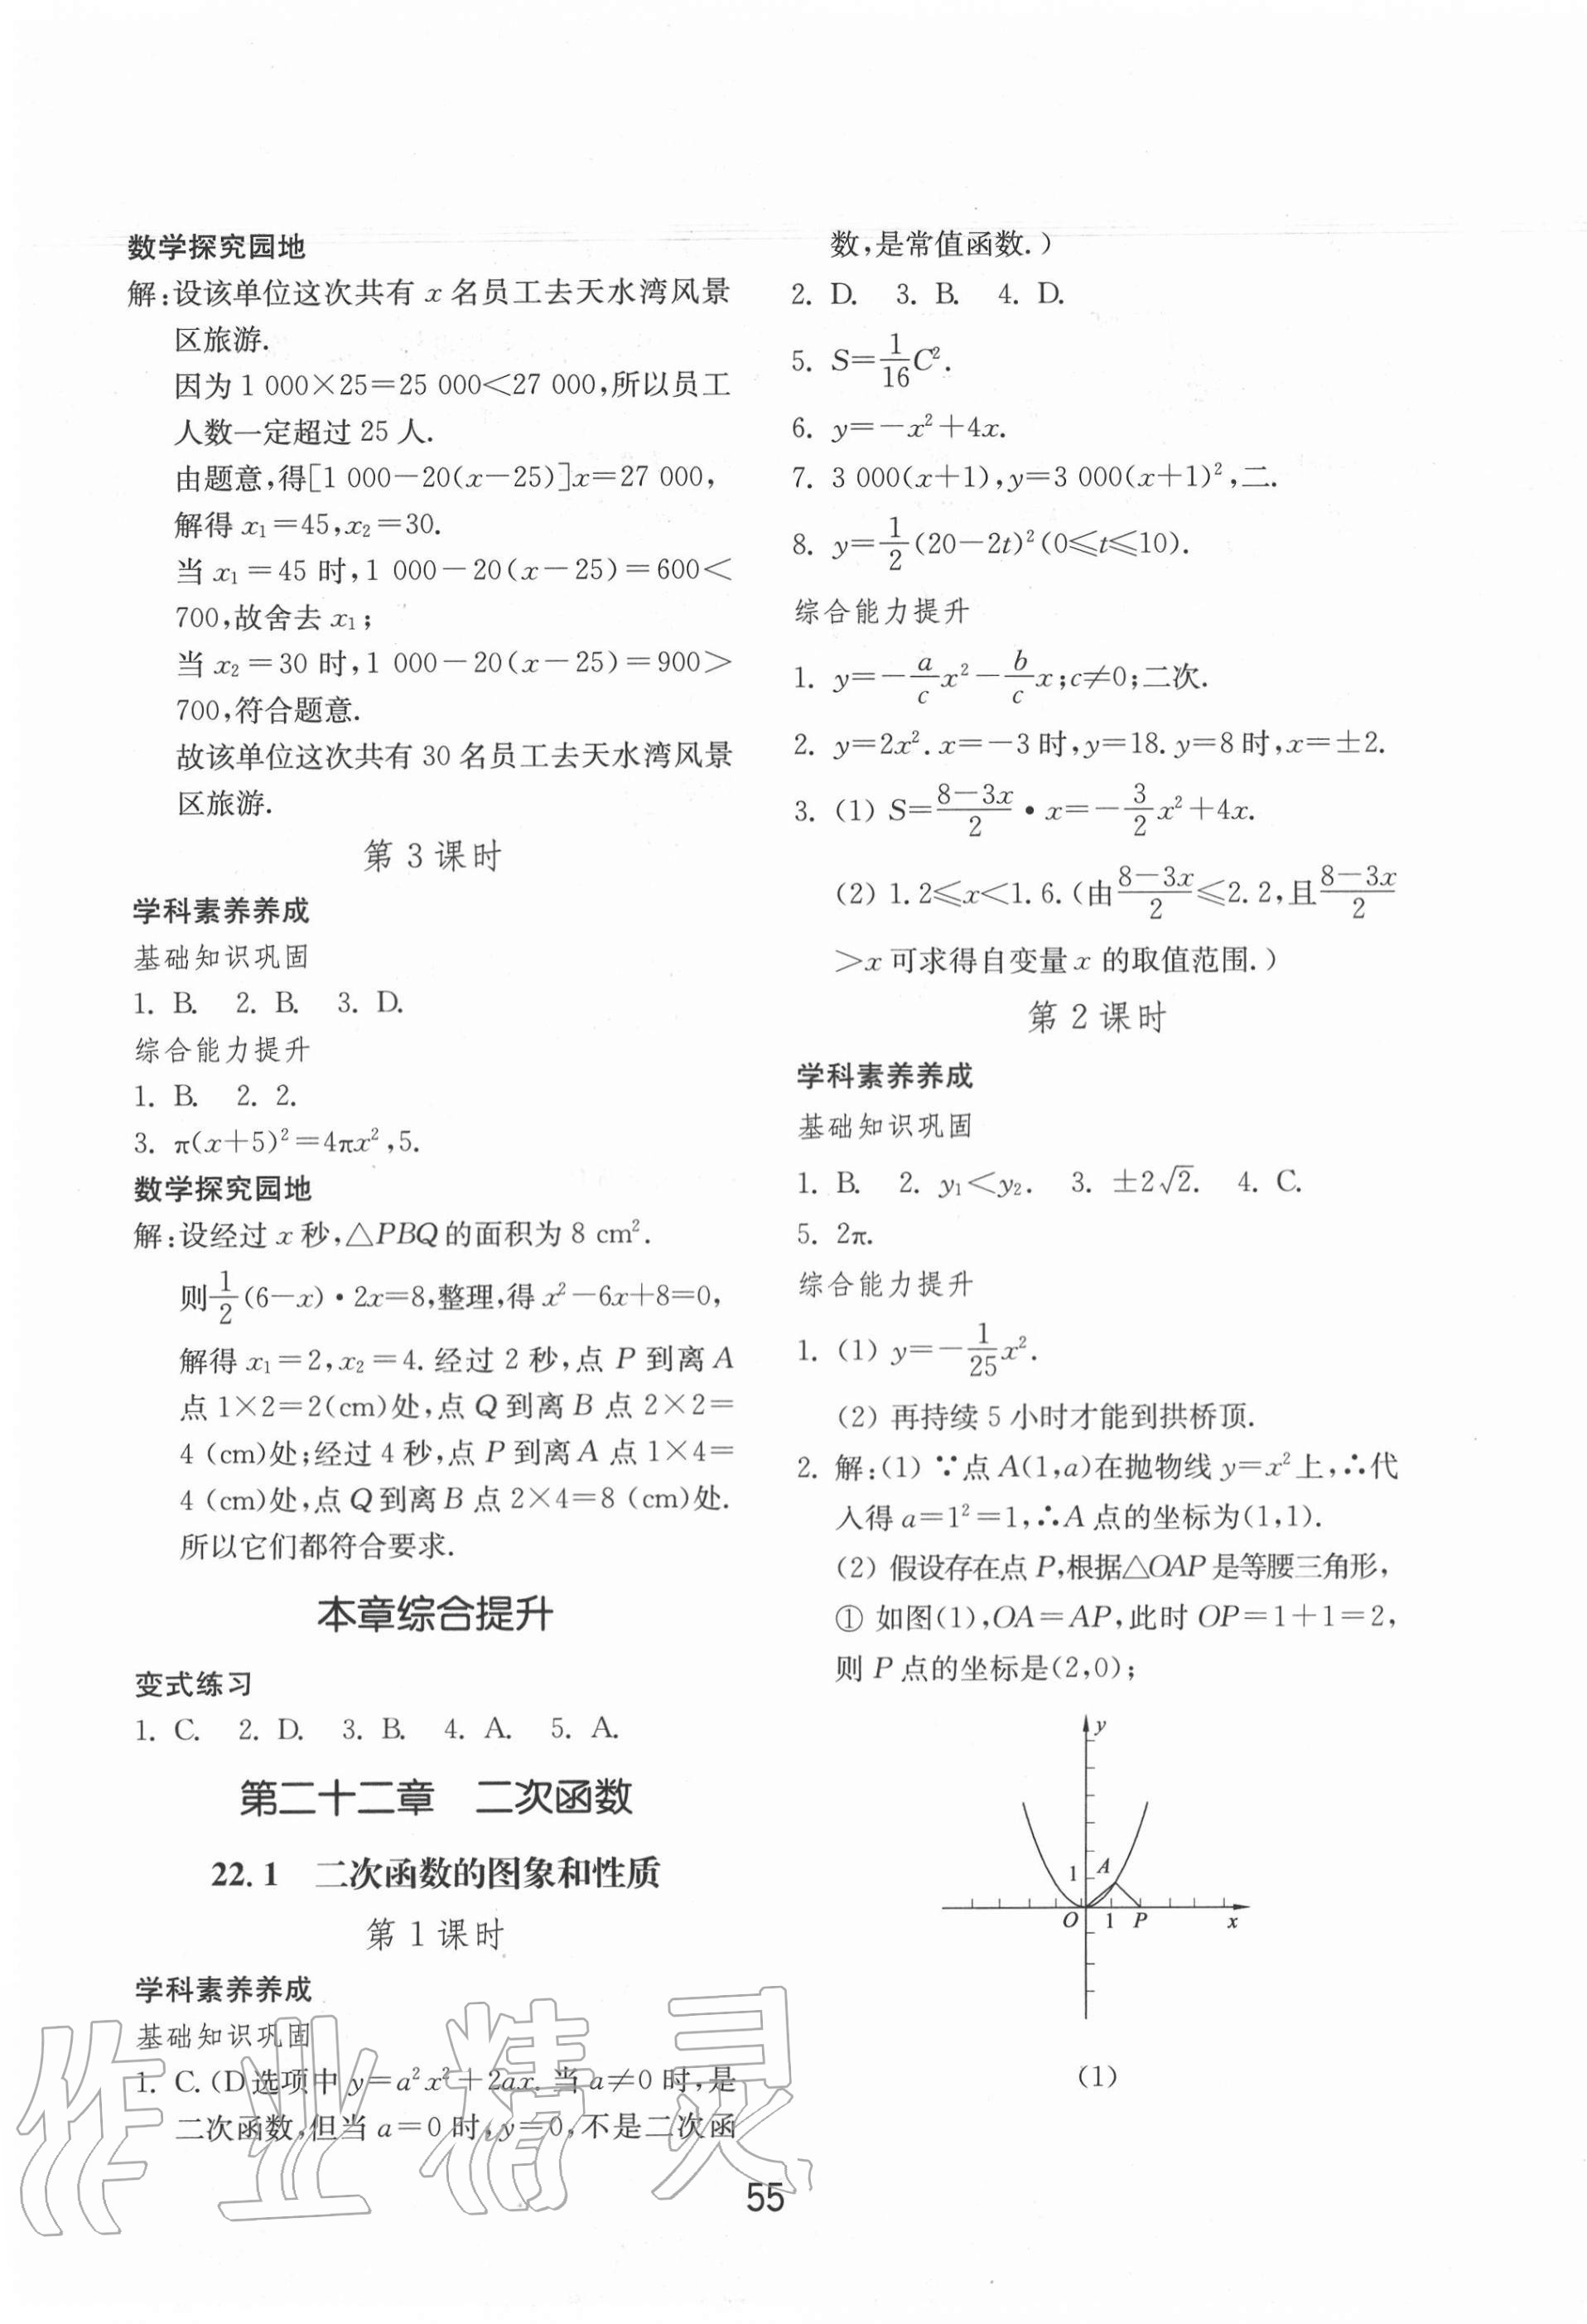 数学探究园地
解:设该单位这次共有 x 名员工去天水湾风景
区旅游.
因为 1 000×25=25 000<27 000,所以员工
人数一定超过 25 人.
由题意,得[1 000-20(x-25)]x=27 000,
解得 x₁=45,x₂=30.
当 x₁=45 时,1 000-20(x-25)=600<
700,故舍去 x₁;
当 x₂=30 时,1 000-20(x-25)=900>
700,符合题意.
故该单位这次共有 30 名员工去天水湾风景
区旅游.
第 3 课时
学科素养养成
基础知识巩固
1. B. 2. B. 3. D.
综合能力提升
1. B. 2. 2.
3. π(x+5)²=4πx²,5.
数学探究园地
解:设经过 x 秒,△PBQ的面积为 8 cm².
则1/2(6-x)·2x=8,整理,得 x²-6x+8=0,
解得 x₁=2,x₂=4. 经过 2 秒,点 P 到离 A
点 1×2=2(cm)处,点 Q 到离 B 点 2×2=
4 (cm)处;经过 4 秒,点 P 到离 A 点 1×4=
4 (cm)处,点 Q 到离 B 点 2×4=8 (cm)处.
所以它们都符合要求.
本章综合提升
变式练习
1. C. 2. D. 3. B. 4. A. 5. A.
第二十二章 二次函数
22.1 二次函数的图象和性质
第 1 课时
学科素养养成
基础知识巩固
1. C. (D选项中 y=a²x²+2ax. 当 a≠0 时,是
二次函数,但当 a=0 时,y=0,不是二次函
数,是常值函数.)
2. D. 3. B. 4. D.
5. S=1/16C².
6. y=-x²+4x.
7. 3 000(x+1),y=3 000(x+1)²,二.
8. y=1/2(20-2t)²(0≤t≤10).
综合能力提升
1. y=-a/cx²-b/cx;c≠0;二次.
2. y=2x². x=-3 时,y=18. y=8 时,x=±2.
3. (1) S=(8-3x)/2·x=-3/2x²+4x.
(2) 1.2≤x<1.6. (由(8-3x)/2≤2.2,且(8-3x)/2
>x 可求得自变量 x 的取值范围.)
第 2 课时
学科素养养成
基础知识巩固
1. B. 2. y₁<y₂. 3. ±2√2. 4. C.
5. 2π.
综合能力提升
1. (1) y=-1/25x².
(2) 再持续 5 小时才能到拱桥顶.
2. 解:(1) ∵点 A(1,a)在抛物线 y=x²上,∴代
入得 a=1²=1,∴A 点的坐标为(1,1).
(2) 假设存在点 P,根据△OAP 是等腰三角形,
① 如图(1),OA=AP,此时 OP=1+1=2,
则 P 点的坐标是(2,0);
y
1 A
O 1 P x
(1)
作业精灵
55